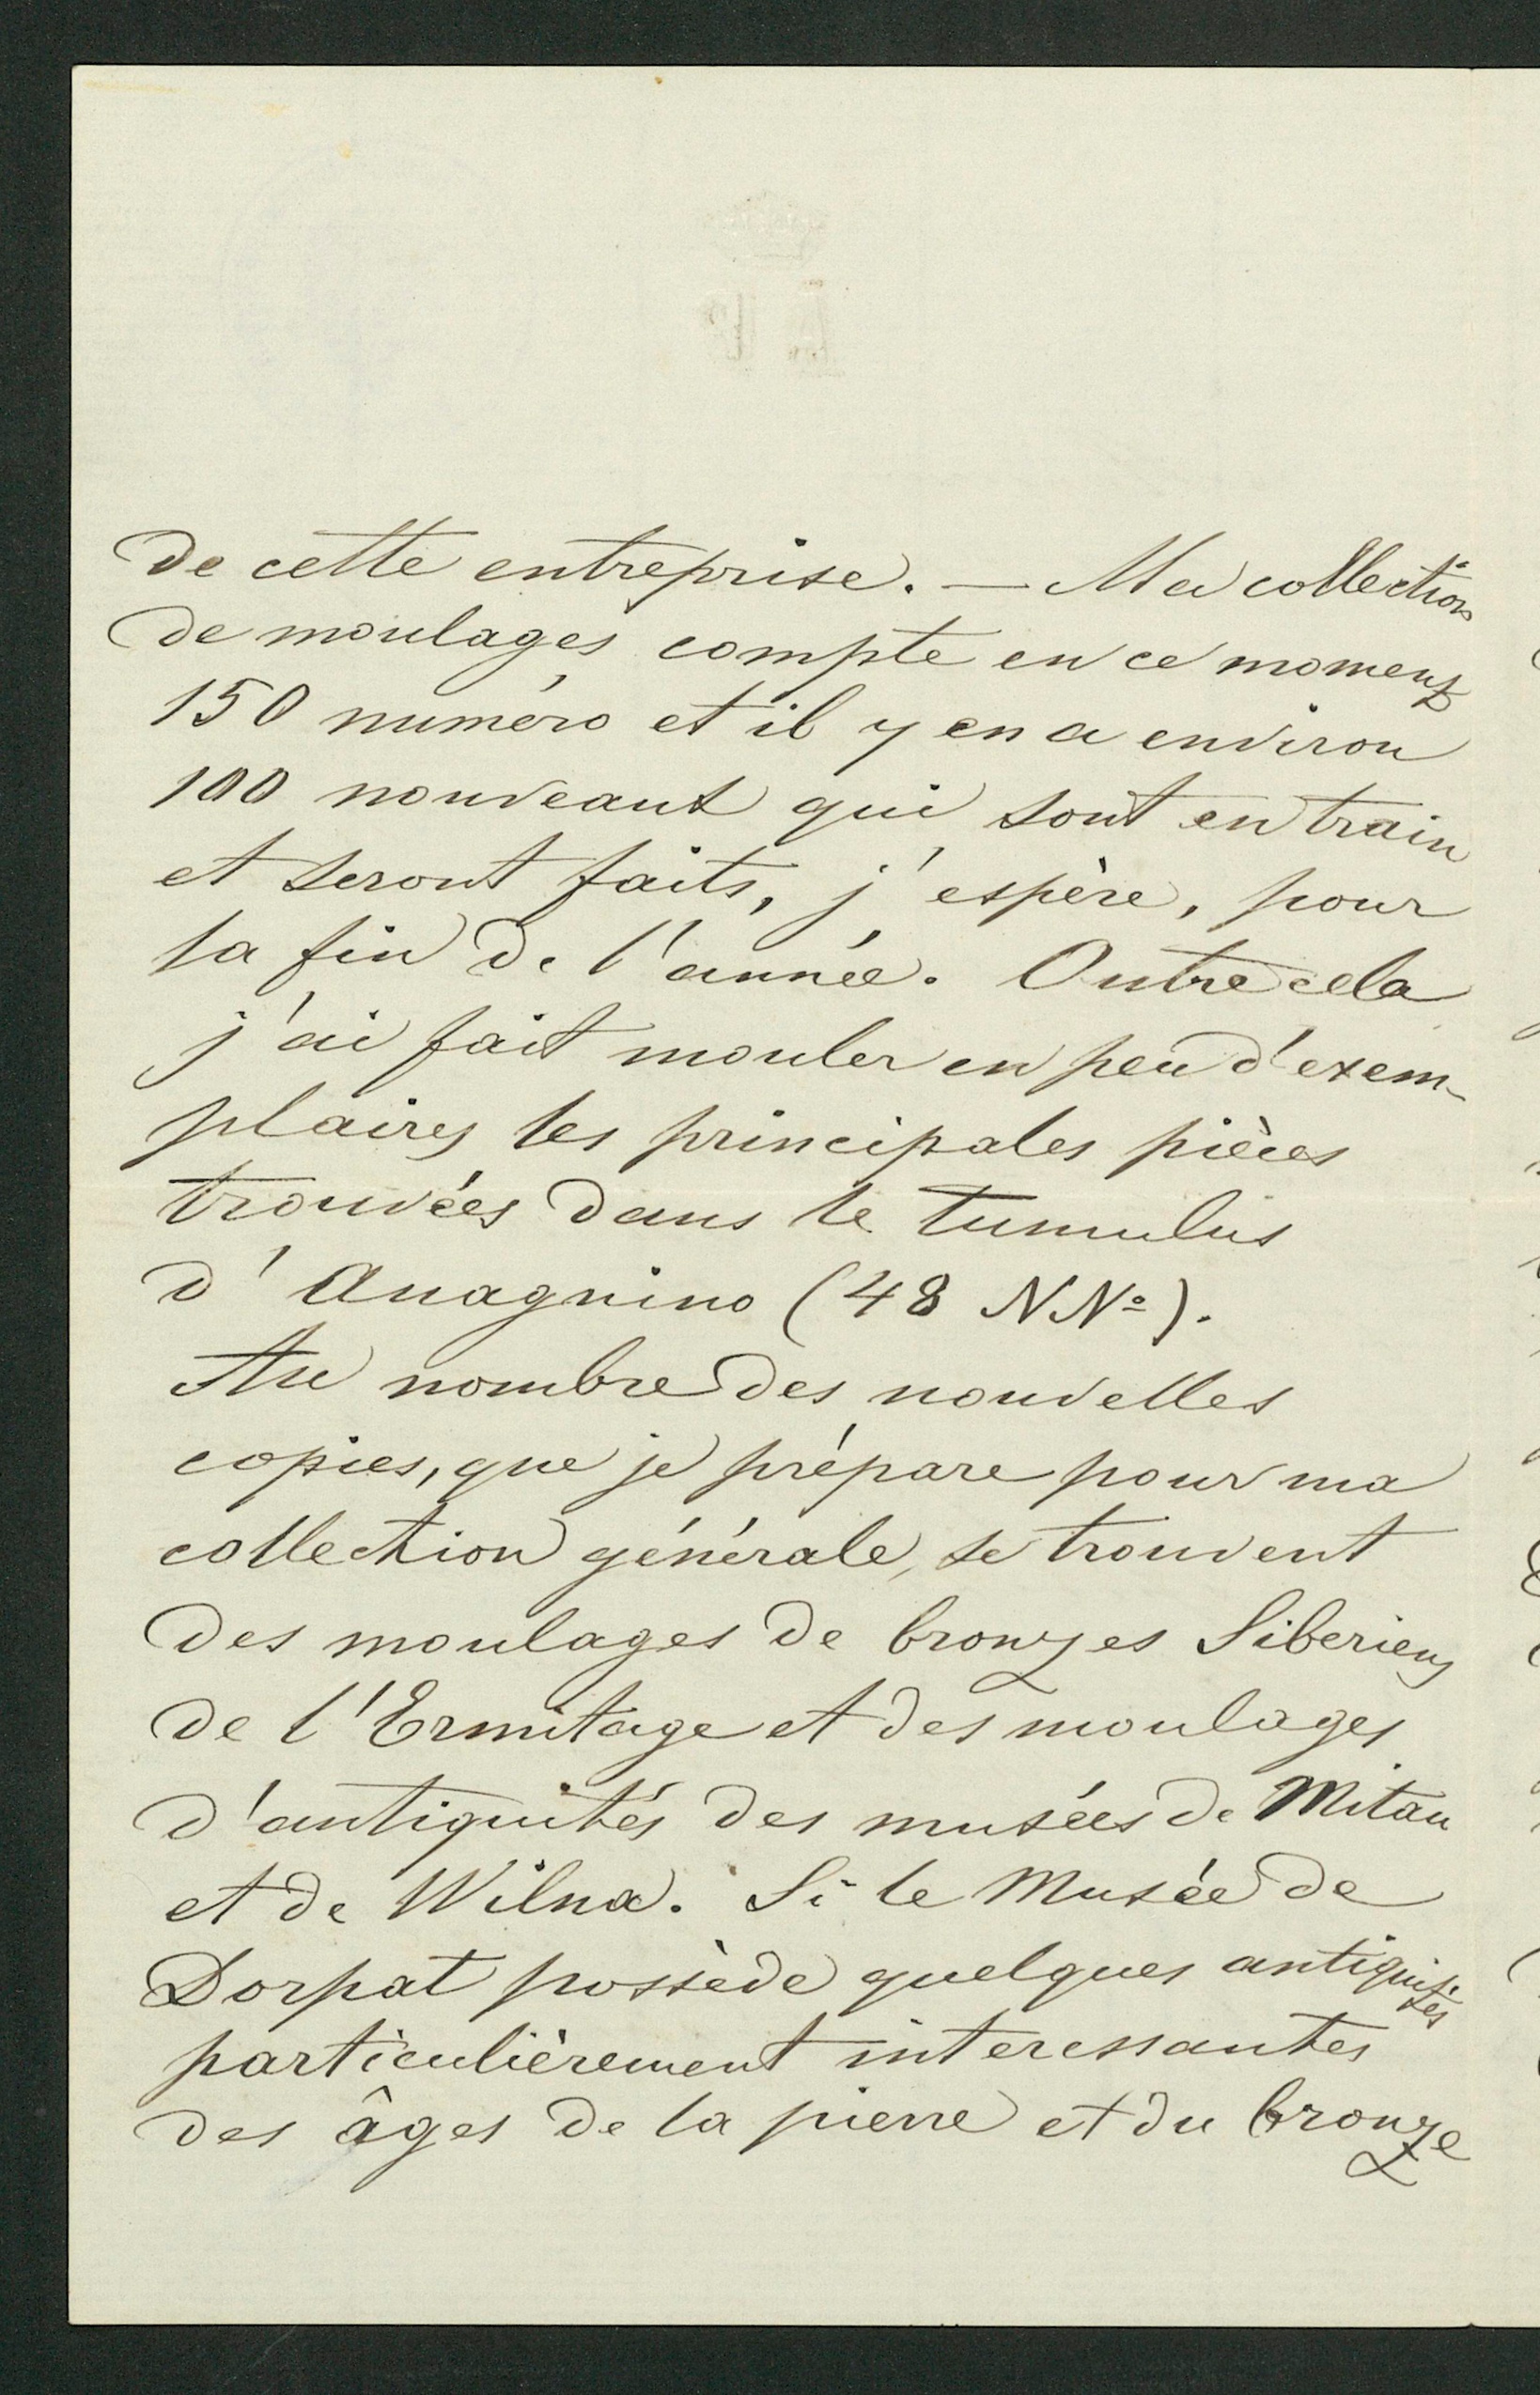 de cette entreprise. — Ma collection
de moulages compte en ce moment
150 numéro et il y en a environ
100 nouveaux qui sont en train
et seront faits, j'espère, pour
la fin de l'année. Outre cela
j'ai fait mouler en peu d'exem-
plaires les principales pièces
trouvées dans le tumulus
d'Anagnino (48 NNo).
Au nombre des nouvelles
copies, que je prépare pour ma
collection générale, se trouvent
des moulages de bronzes Siberiens
de l'Ermitage et des moulages
d'antiquités des musées de Mitau
et de Wilna. Si le Musée de
Dorpat possède quelques antiquités
particulièrement interessantes
des âges de la pierre et du bronze